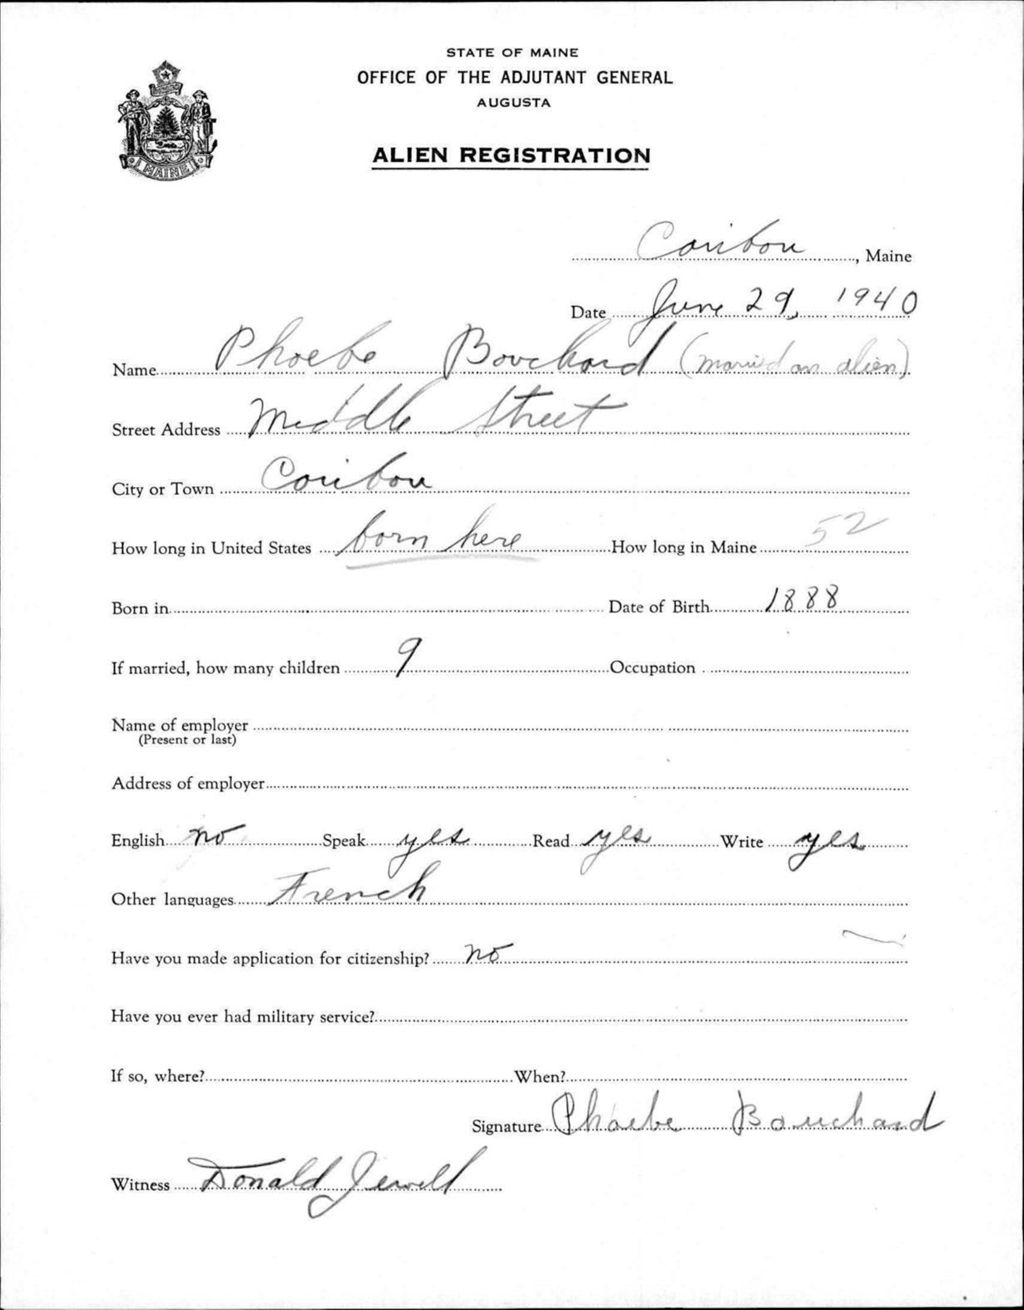 STATE OF MAINE
OFFICE OF THE ADJUTANT GENERAL
AUGUSTA
ALIEN REGISTRATION
MAINE
Caribou, Maine
Date June 29, 1940
Name Phoebe Bouchard (married an alien)
Street Address Middle Street
City or Town Caribou
How long in United States born here How long in Maine 52
Born in Date of Birth 1888
If married, how many children 9 Occupation
Name of employer
(Present or last)
Address of employer
English no Speak yes Read yes Write yes
Other languages French
Have you made application for citizenship? no
Have you ever had military service?
If so, where? When?
Signature Phoebe Bouchard
Witness Donald Jewell